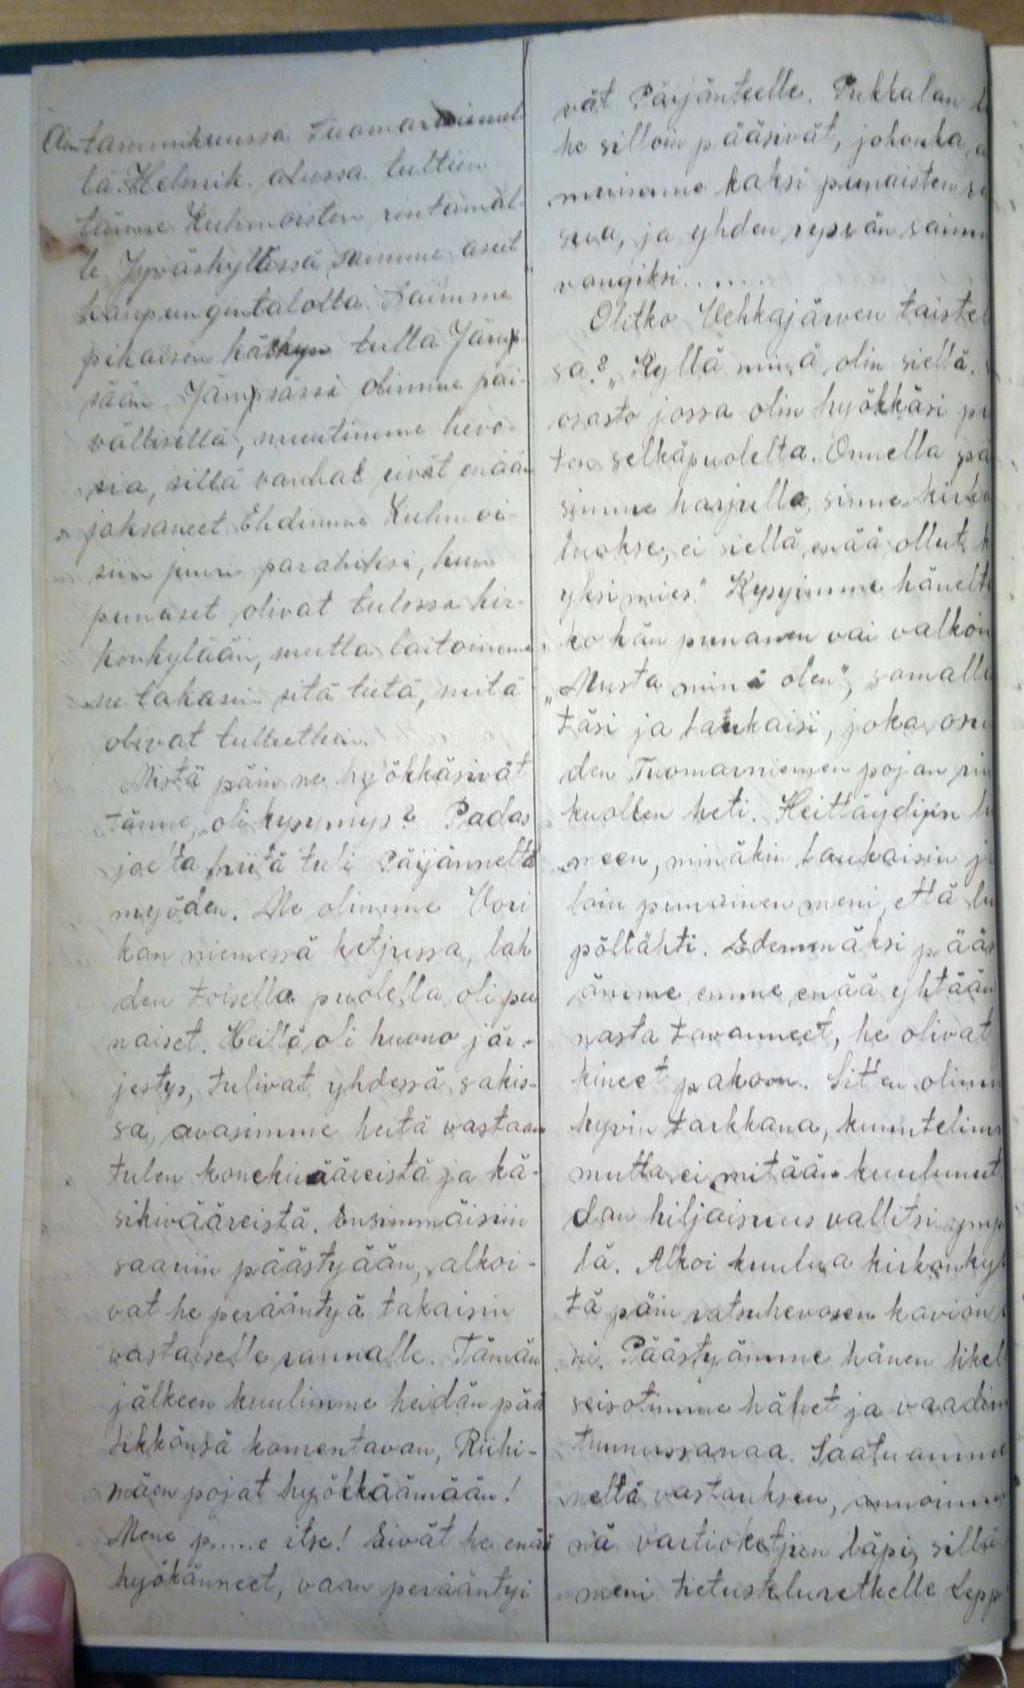 Olin tammikuussa Tuomarniemel-
lä. Helmik. alussa tultiin
tänne Kuhmoisten rintamal-
le. Jyväskylässä saimme aseet
kaupungintalolta. Saimme
pikaisen käskyn tulla Jämp-
sään. Jämpsässä olimme päi-
vällisellä, muutimme hevo-
sia, sillä vanhat eivät enään
jaksaneet. Ehdimme Kuhmoi-
siin juuri parahiksi, kun
punaset olivat tulossa kir-
konkylään, mutta laitoimme
ne takasin sitä tietä, mitä
olivat tulleetkin.
Mistä päin ne hyökkäsivät
tänne, oli kysymys? Padas
joelta niitä tuli Päijännettä
myöden. Me olimme
kan niemessä ketjussa, lah
den toisella puolella oli pu
naiset. Heillä oli huono jär-
jestys, tulivat yhdessä sakis-
sa, avasimme heitä vastaan
tulen konekivääreistä ja kä-
sikivääreistä. Ensimmäisiin
saariin päästyään, alkoi-
vat he perääntyä takaisin
vastaiselle rannalle. Tämän
jälkeen kuulimme heidän pää
likkönsä komentavan, Riihi-
mäen pojat hyökkäämään!
Mene p.....e itse! Eivät he enää
hyökänneet, vaan perääntyi
vät Pärjänteelle. Pukkalan
he silloin pääsivät, johonka
muimme kaksi punaisten
sua, ja yhden ryssän saim
vangiksi......
Olitko Vehkajärven taistel
sa? „Kyllä minä olin siellä.
osasto jossa olin hyökkäsi pu
ten selkäpuolelta. Onnella pää
simme harjulle, sinne kirko
luokse, ei siellä enää ollut k
yksi mies." Kysyimme hänelt
ko hän punanen vai valkoin
„Musta minä olen", samalla
täsi ja laukaisi, joka osu
den Tuomarniemen pojan rin
kuollen heti. Heittäydyin lu
meen, minäkin laukaisin ja
loin punainen meni, että lu
pöllähti. Edemmäksi pääs
ämme emme enää yhtään
nasta tavanneet, he olivat
kineet pakoon. Sitten olimm
hyvin tarkkana, kuuntelimm
mutta ei mitään kuulunut
dan hiljaisuus vallitsi ymp
lä. Alkoi kuulua kirkonkyl
tä päin ratsuhevosen kavion
ni. Päästyämme hänen likel
seisotimme hänet ja vaadim
tunnussanaa. Saatuamme
neltä vastauksen, annoimme
nä vartioketjun läpi, sillä
meni tietusteluretkelle Lepp